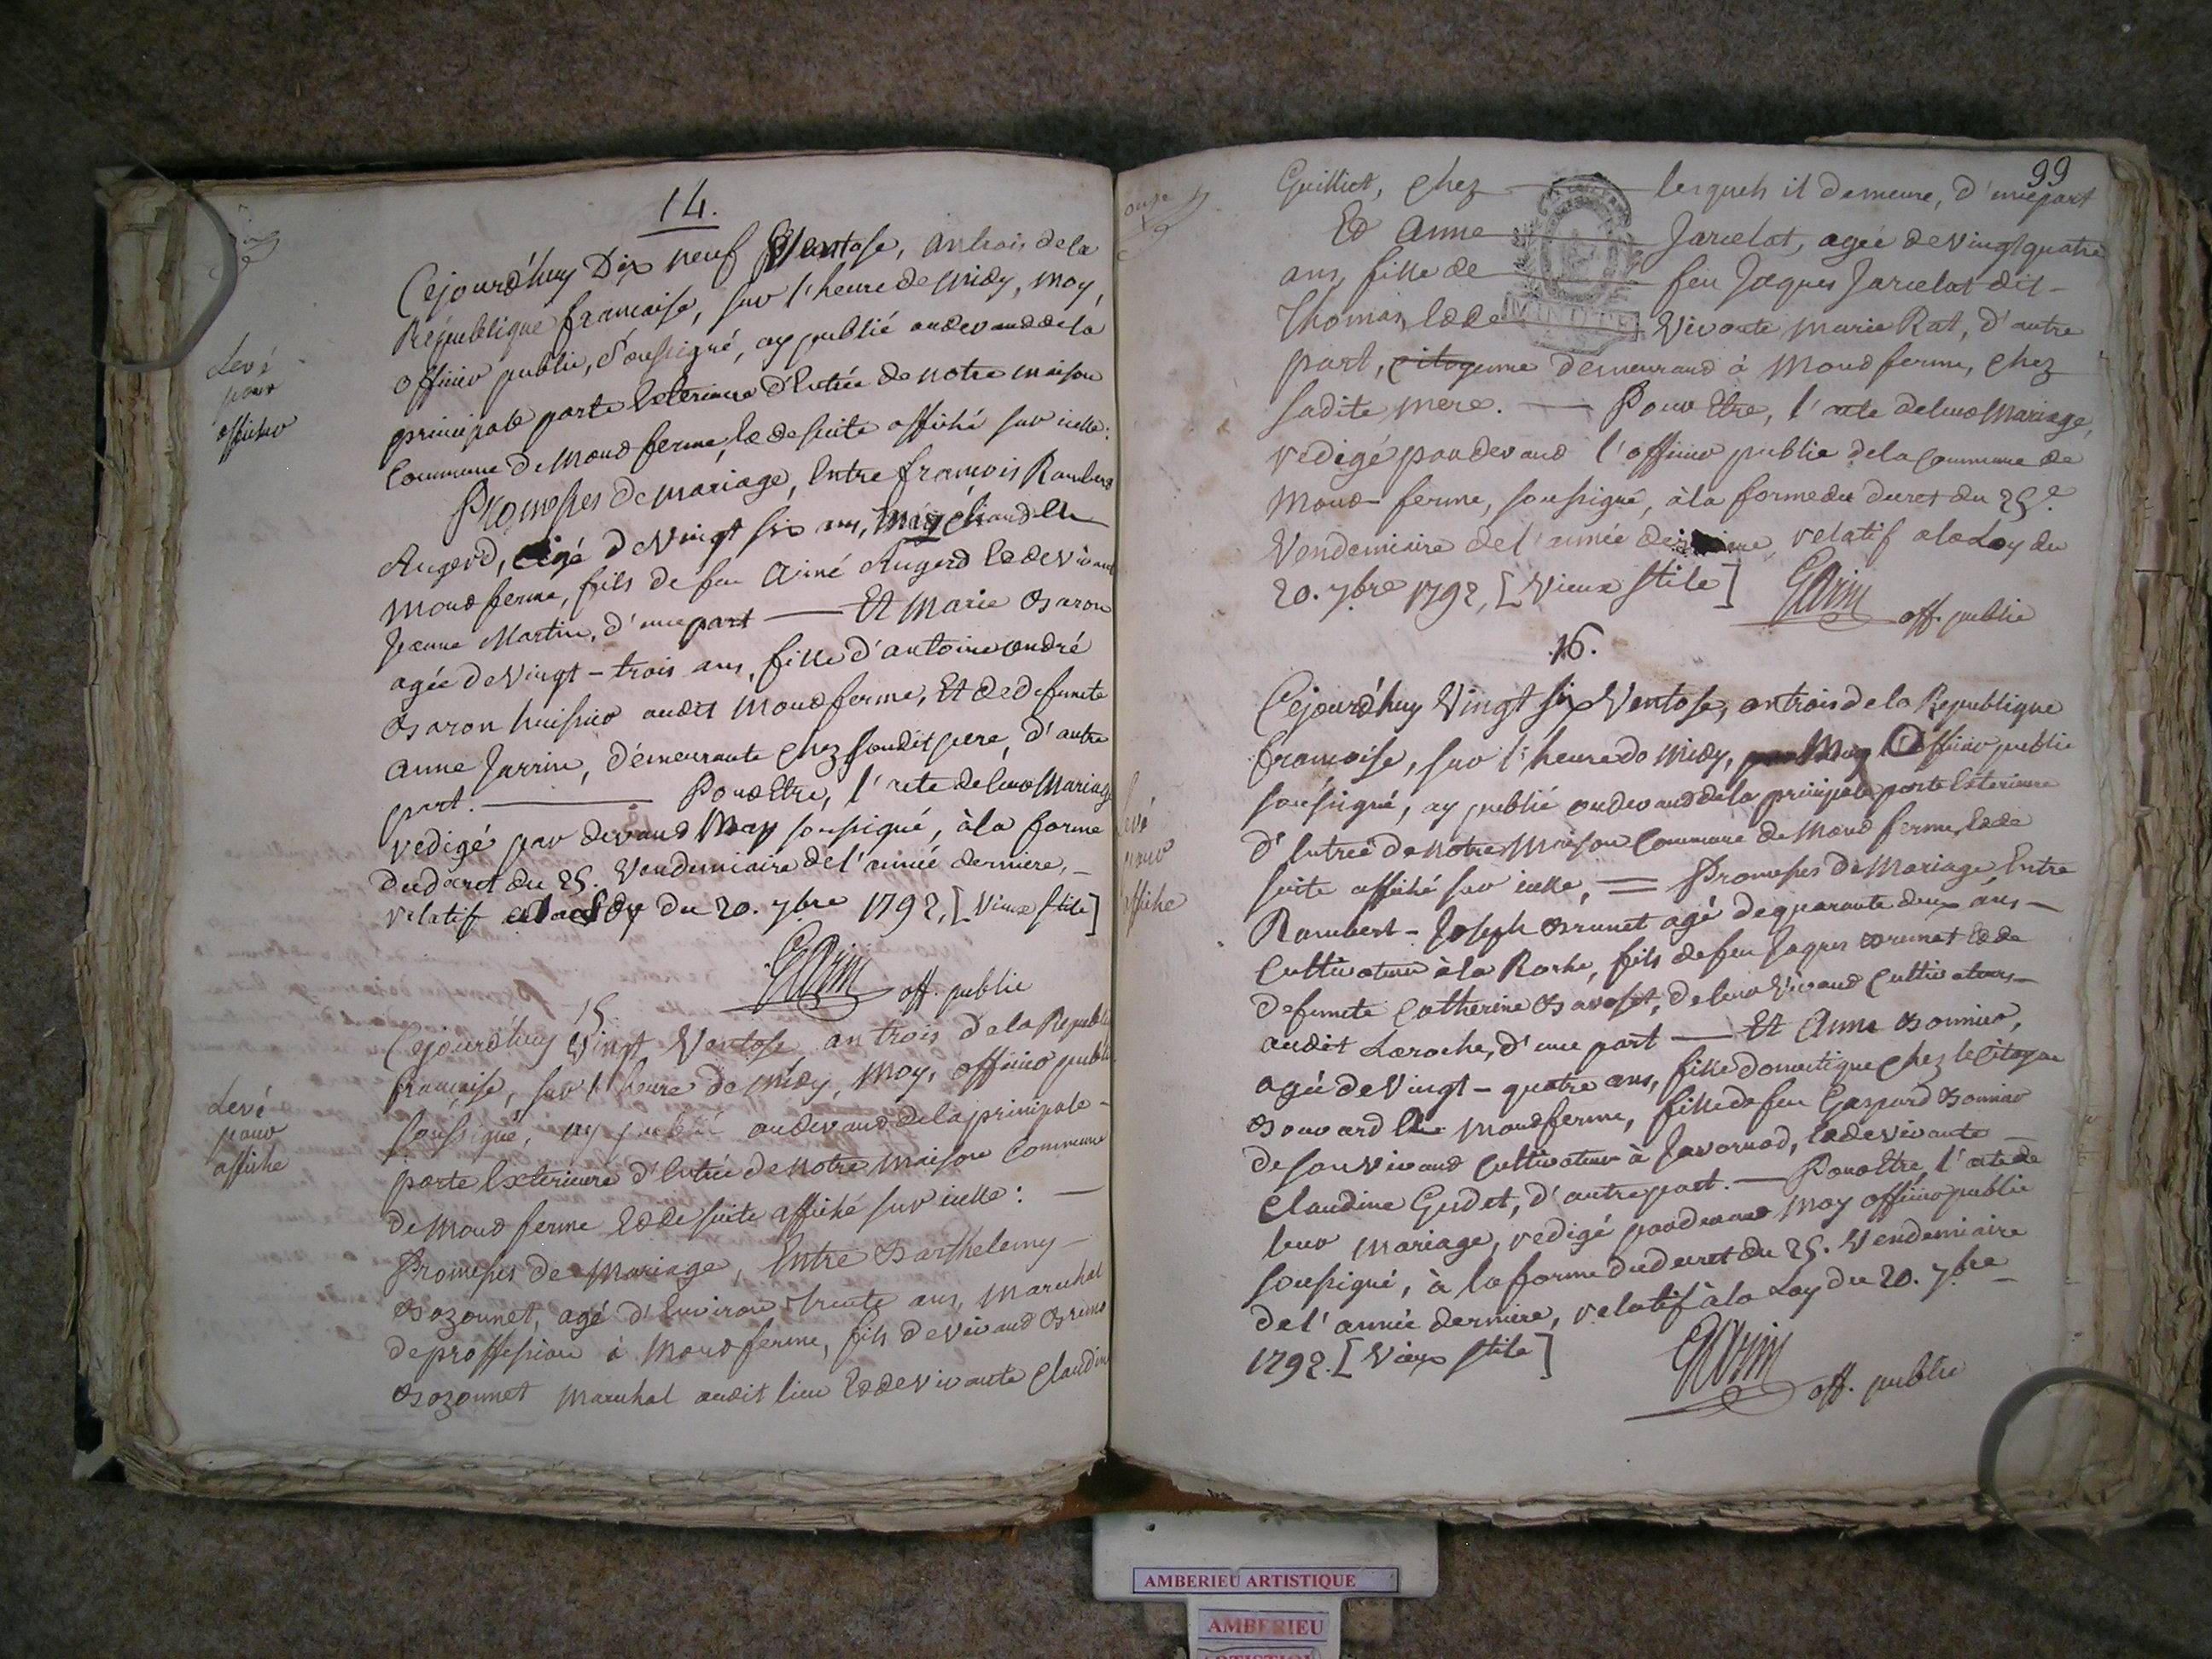 14.
Cejourd'huy Dix neuf Ventose, an trois de la
Republique francaise, sur l'heure de midy, moy,
officier public, soussigné, ay publié audevand de la
principale porte Exterieure d'Entrée de notre maison
Commune de Mond ferme, Et de suite affiché sur icelle:
Promesses de mariage, Entre françois Rambert
Augerd, agé de Vingt six ans, Marchand
Mond ferme, fils de feu Aimé Augerd Et de Vivante
Jeanne Martin, d'une part — Et Marie Baron
agée de Vingt-trois ans, fille d'antoine andré
Baron huissier audit Mond ferme, Et de defuncte
Anne Jarrin, demeurante chez soudit pere, d'autre
part. — Pour Etre, l'acte de leur Mariage
redigé par devand Moy soussigné, à la forme
du decret du 25. Vendemiaire de l'année derniere,
relatif a la Loy du 20. 7bre 1792, [Vieux Stile]
off. public
Levé
pour
afficher
15.
Cejourd'huy Vingt Ventose an trois de la Republi
francaise, sur l'heure de midy, Moy, officier publi
soussigné, ay publié audevand de la principale
porte Exterieure d'Entrée de notre maison Commune
de Mond ferme Et de suite affiché sur icelle: —
Promesses de Mariage, Entre Barthelemy
Bozonnet, agé d'Environ trente ans, Marechal
de proffession à Mond ferme, fils de Vivand
Bozonnet Marechal audit lieu Et de Vivante Claudin
Levé
pour
affiche
99
Guilliet, chez — lesquels il demeure, d'une part
Et Anne — Jarcelat, agée de Vingt quatre
ans, fille de — feu Jaques Jarcelat dit
Thomas, Et de Vivante Marie Rat, d'autre
part, citoyenne demeurand à Mond ferme, chez
sadite mere. — Pour Etre, l'acte de leur Mariage,
redigé pardevand l'officier public de la Commune de
Mond-ferme, soussigné, à la forme du decret du 25.e
Vendemiaire de l'année derniere relatif a la Loy du
20. 7bre 1792, [Vieux Stile]
off. public
16.
Cejourd'huy Vingt six Ventose, an trois de la Republique
francoise, sur l'heure de midy, Moy Officier public
soussigné, ay publié audevand de la principale porte Exterieure
d'Entrée de notre Maison Commune de Mond ferme, Et de
suite affiché sur icelle, = Promesses de Mariage Entre
Rambert-Joseph Brunet agé de quarante deux ans
Cultivateur à la Roche, fils de feu Jaques Brunet Et de
defuncte Catherine, de leur Vivand Cultivateurs
audit Laroche, d'une part — Et Anne Bonnier,
agée de Vingt-quatre ans, fille domestique chez le Citoyen
Bouvard Mond ferme, fille de feu Gaspard Bonnier
de son vivand Cultivateur à Javornod, Et de vivante
Claudine Gudet, d'autre part. — Pour Etre, l'acte de
leur Mariage, redigé pardevand Moy officier public
soussigné, à la forme du decret du 25. Vendemiaire
de l'année derniere, relatif à la Loy du 20. 7bre
1792. [Vieux Stile]
off. public
Levé
pour
affiche
AMBERIEU ARTISTIQUE
AMBERIEU
ARTISTIQUE